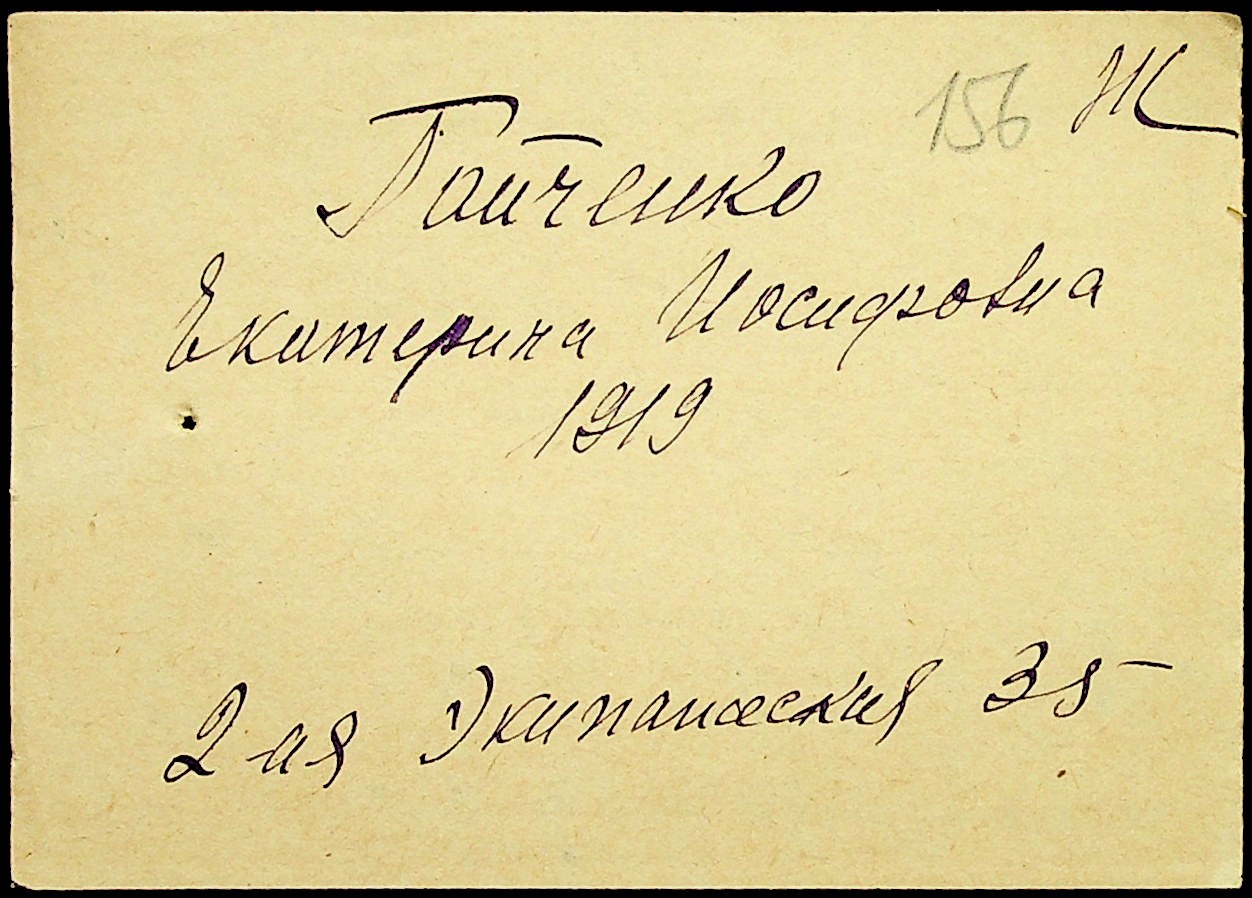 156 Ж
Гайченко
Екатерина Иосифовна
1919
2-ая Экипажеская 35